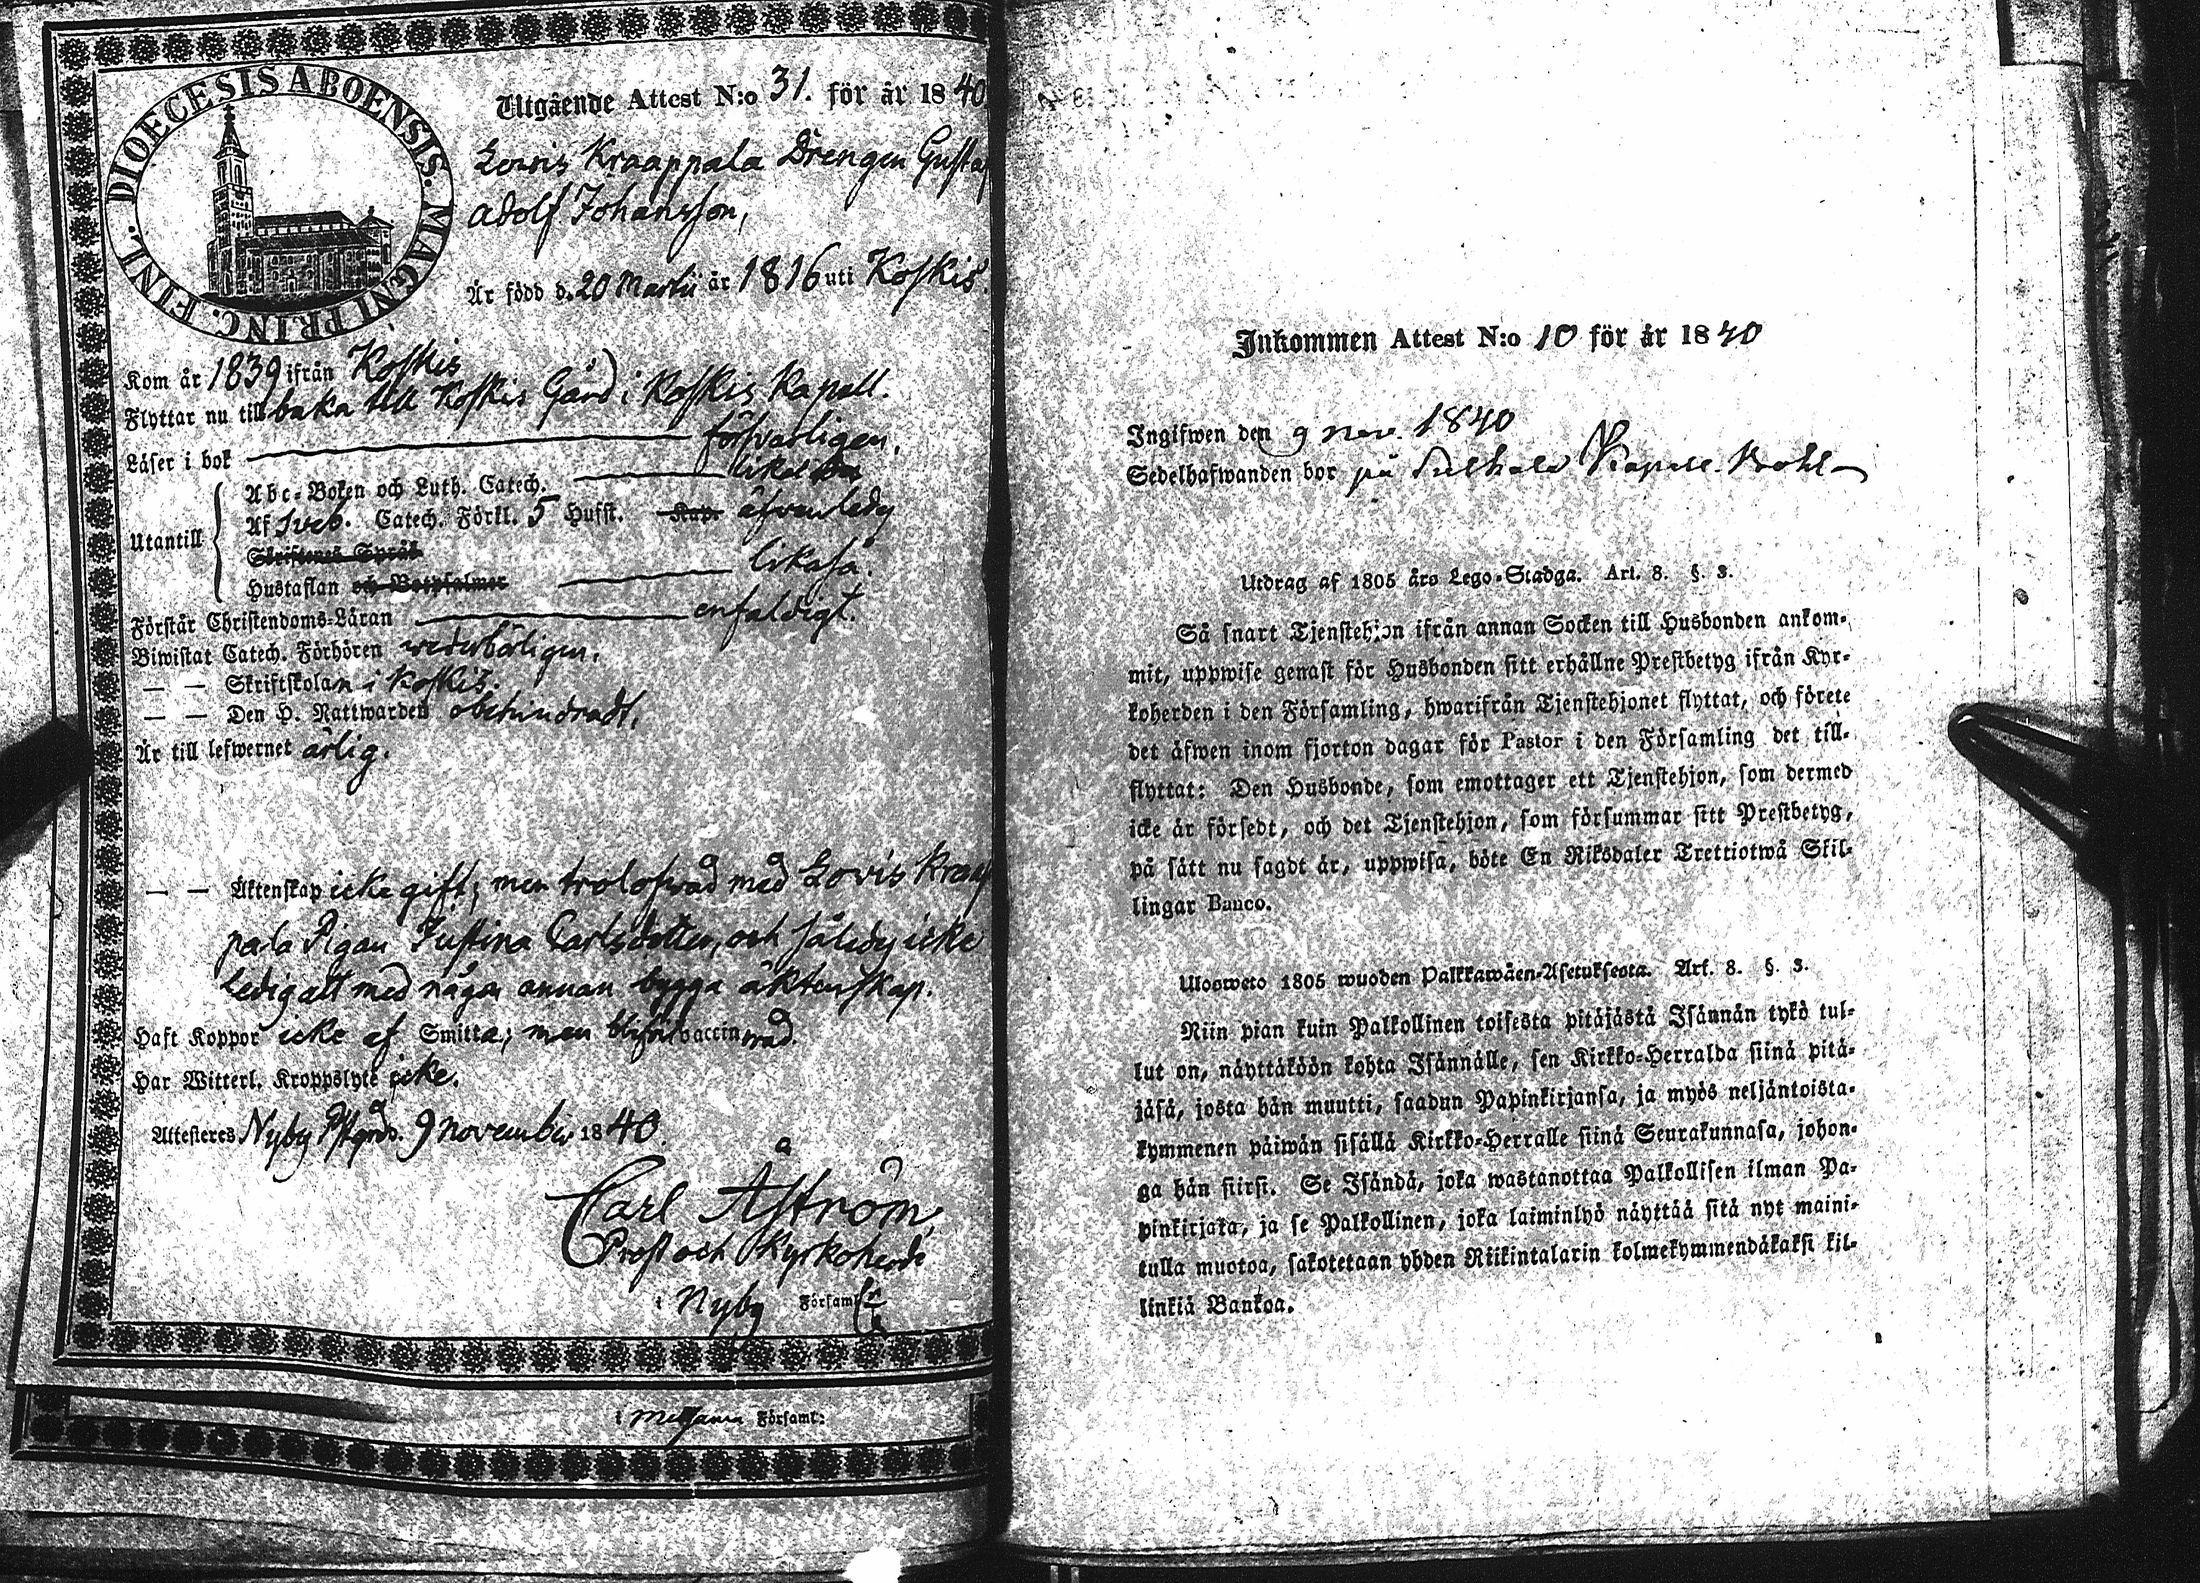 DIOECESIS ABOENSIS. MAGNI PRINC. FINL.
Utgående Attest N:o 31. för år 1840
Lovis Kraappala Drengen Gustaf
Adolf Johansson,
Är född d. 20 Martii år 1816 uti Koskis
Kom år 1839 ifrån Koskis
Flyttar nu tillbaka till Koskis Gård i Koskis Kapell.
Läser i bok försvarligen,
Abc-Boken och Luth. Catech. likaså
Utantill
Af Sveb. Catech. Förkl. 5 Hufst. Kap. äfvenledes
Skriftenes Språk
Hustaflan och Botpsalmer likaså.
Förstår Christendoms-Läran enfaldigt.
Biwistat Catech. Förhören wederbörligen.
— — Skriftskolan i Koskis.
— — Den H. Nattwarden obehindradt.
Är till lefwernet ärlig.
— — Äktenskap icke gift; men trolofwad med Lovis Kraap
pala Pigan Justina Carlsdotter, och således icke
ledig att med någon annan bygga äktenskap.
Haft Koppor icke af Smitta; men blifvit vaccinerad.
Har Witterl. Kroppslyte icke.
Attesteres Nyby Pstgrd. 9 november 1840.
Carl Åström,
Prost och Kyrkoherde
i Nyby Församl:
i Församl:
Inkommen Attest N:o 10 för år 1840
Ingifwen den 9 nov. 1840
Sedelhafwanden bor på Kapell
Utdrag af 1805 års Lego-Stadga. Art. 8. §. 3.
Så snart Tjenstehjon ifrån annan Socken till Husbonden ankom-
mit, uppwise genast för Husbonden sitt erhållne Prestbetyg ifrån Kyr-
koherden i den Församling, hwarifrån Tjenstehjonet flyttat, och förete
det äfwen inom fjorton dagar för Pastor i den Församling det till-
flyttat: Den Husbonde, som emottager ett Tjenstehjon, som dermed
icke är försedt, och det Tjenstehjon, som försummar sitt Prestbetyg,
på sätt nu sagdt är, uppwisa, böte En Riksdaler Trettiotwå Skil-
lingar Banco.
Ulosweto 1805 wuoden Palkkawäen-Asetuksesta. Art. 8. §. 3.
Niin pian kuin Palkollinen toisesta pitäjästä Isännän tykö tul-
lut on, näyttäköön kohta Isännälle, sen Kirkko-Herralda siinä pitä-
jäsä, josta hän muutti, saadun Papinkirjansa, ja myös neljäntoista-
kymmenen päiwän sisällä Kirkko-Herralle siinä Seurakunnasa, johon-
ga hän siirsi. Se Isändä, joka wastanottaa Palkollisen ilman Pa-
pinkirjata, ja se Palkollinen, joka laiminlyö näyttää sitä nyt maini-
tulla muotoa, sakotetaan yhden Riikintalarin kolmekymmendäkaksi kil-
linkiä Bankoa.